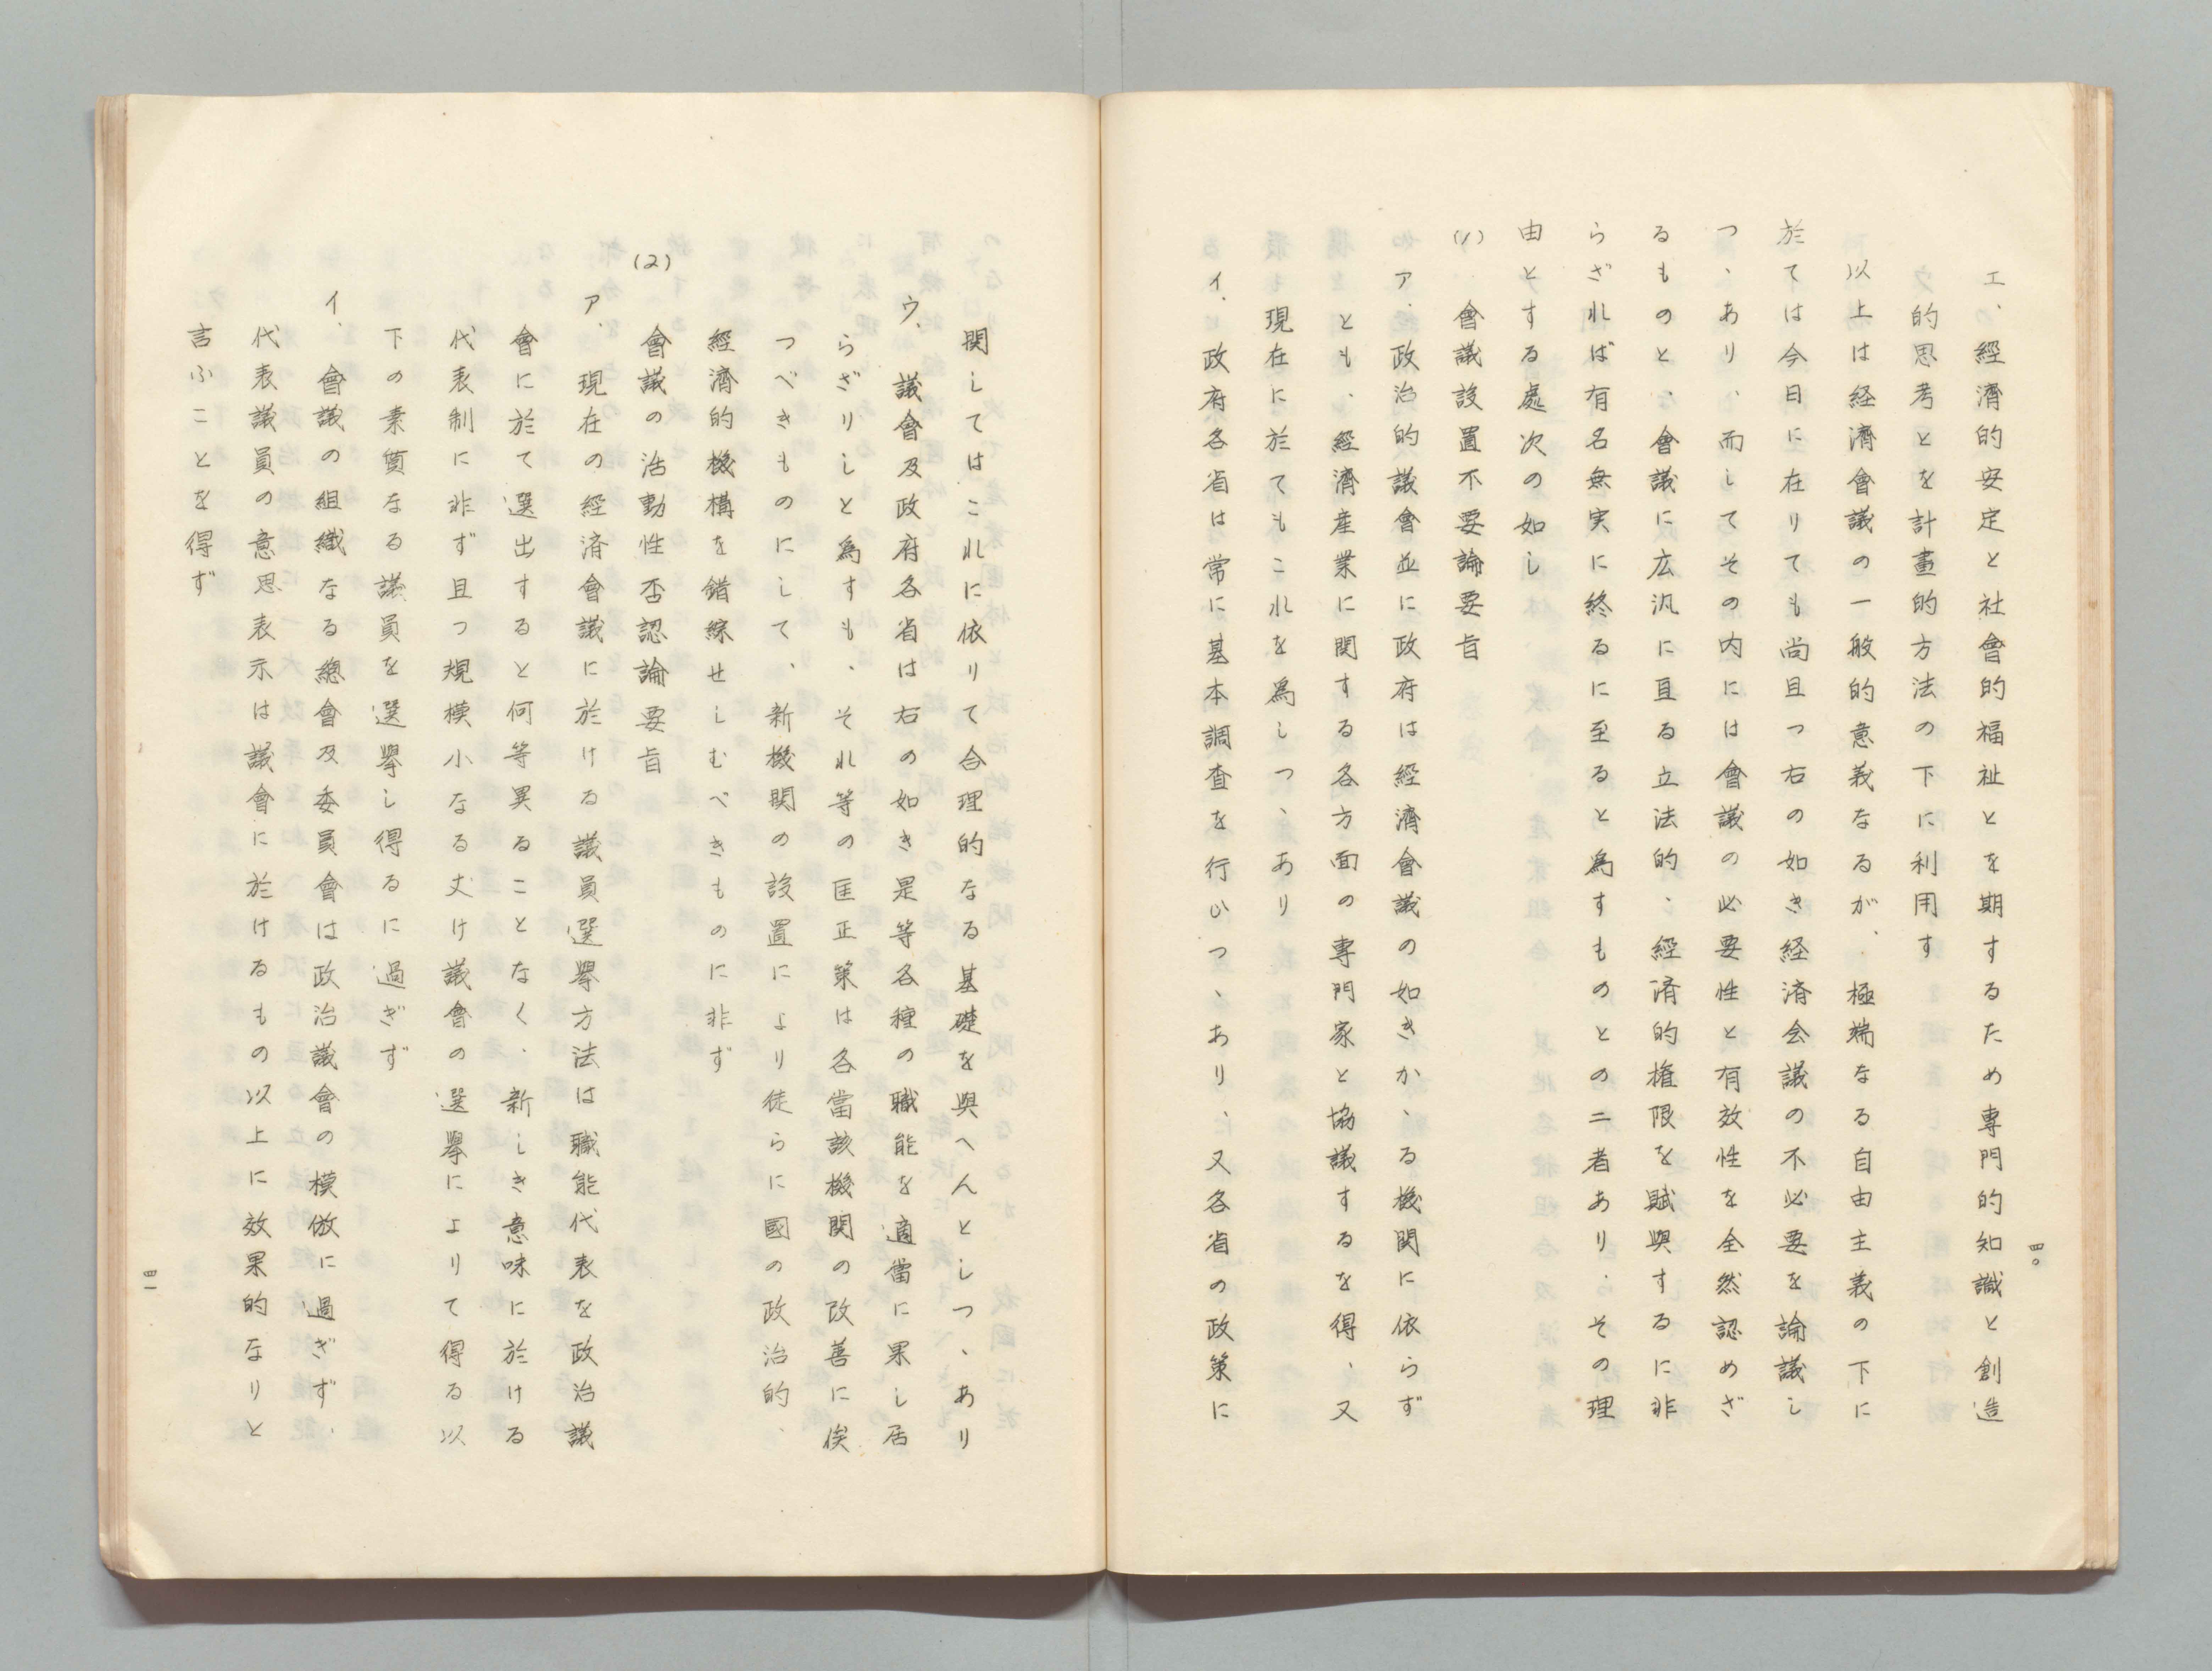 エ、經濟的安定と社會的福祉とを期するため専門的知識と創造
的思考とを計畫的方法の下に利用す
以上は経濟會議の一般的意義なるが、極端なる自由主義の下に
於ては今日に在りても尚且つ右の如き経済会議の不必要を論議し
つゝあり、而してその内には會議の必要性と有效性を全然認めざ
るものと、會議に広汎に亘る立法的、經済的権限を賦與するに非
らざれば有名無実に終るに至ると爲すものとの二者あり、その理
由とする處次の如し
(1) 會議設置不要論要旨
ア、政治的議會並に政府は經濟會議の如きかゝる機関に依らず
とも、經濟産業に関する各方面の専門家と協議するを得、又
現在に於てもこれを爲しつゝあり
イ、政府各省は常に基本調査を行ひつゝあり、又各省の政策に
四〇
関してはこれに依りて合理的なる基礎を與へんとしつゝあり
ウ、議會及政府各省は右の如き是等各種の職能を適當に果し居
らざりしと爲すも、それ等の匡正策は各當該機関の改善に俟
つべきものにして、新機関の設置により徒らに國の政治的、
經濟的機構を錯綜せしむべきものに非ず
(2) 會議の活動性否認論要旨
ア、現在の經済會議に於ける議員選擧方法は職能代表を政治議
會に於て選出すると何等異ることなく、新しき意味に於ける
代表制に非ず且つ規模小なる丈け議會の選擧によりて得る以
下の素質なる議員を選擧し得るに過ぎず
イ、會議の組織なる總會及委員會は政治議會の模倣に過ぎず、
代表議員の意思表示は議會に於けるもの以上に效果的なりと
言ふことを得ず
四一